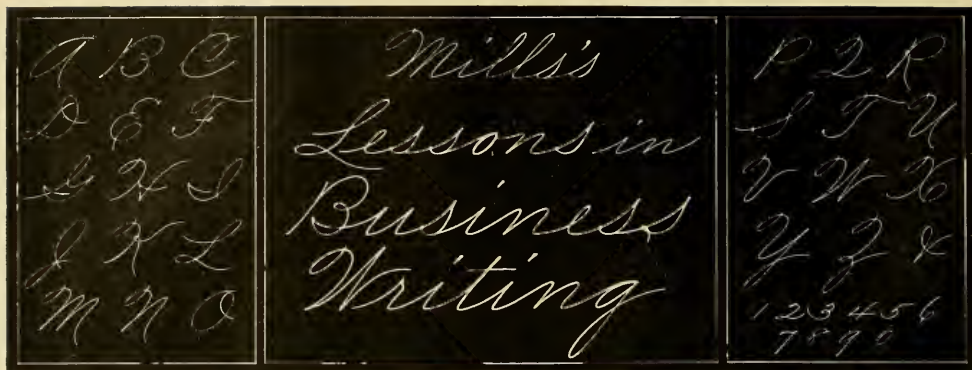 A B C
D E F
G H I
J K L
M N O
Mills's
Lessons in
Business
Writing
P Q R
S T U
V W X
Y Z &
1 2 3 4 5 6
7 8 9 0